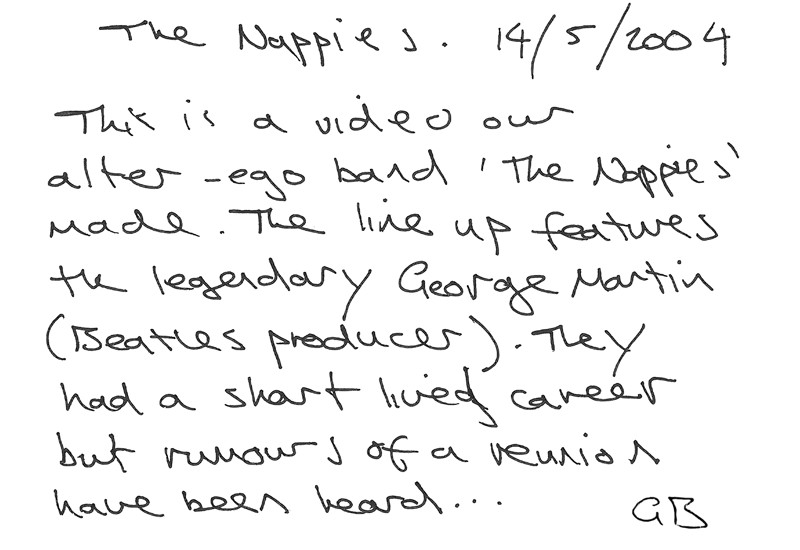 The Nappies. 14/5/2004
This is a video our
alter-ego band 'The Nappies'
made. The line up features
the legendary George Martin
(Beatles producer). They
had a short lived career
but rumours of a reunion
have been heard...
GB